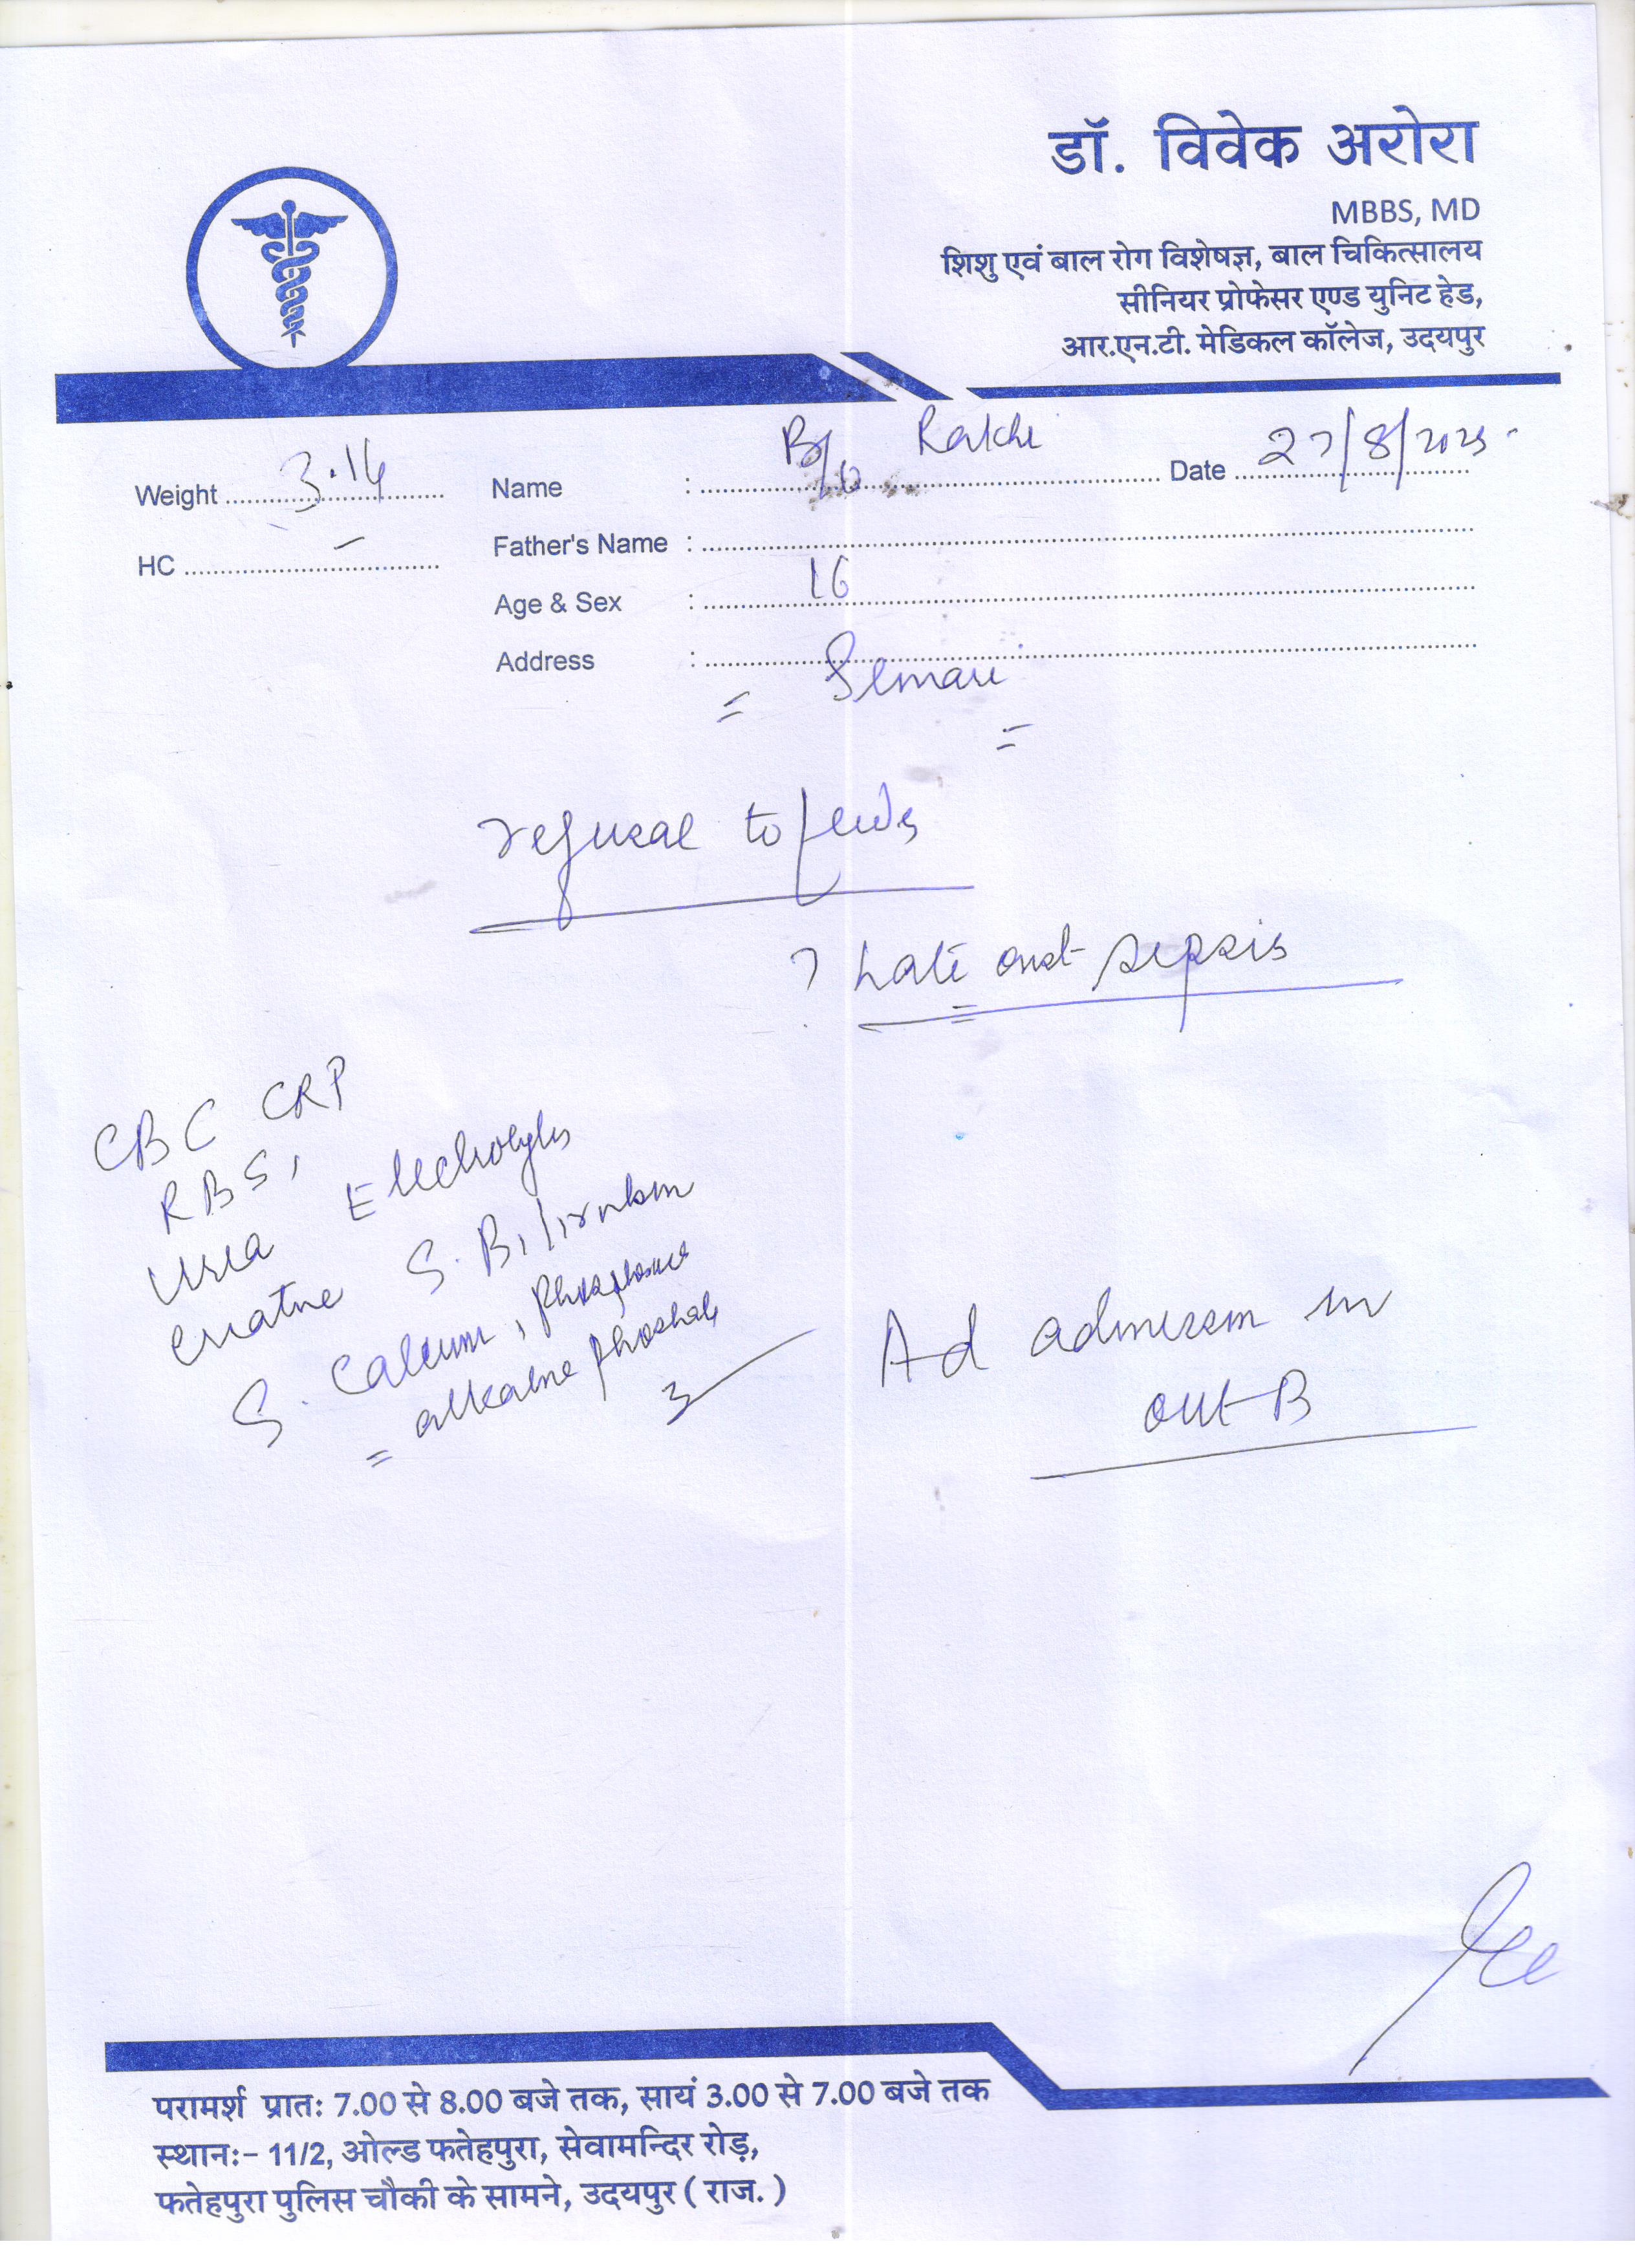 डॉ. विवेक अरोरा
MBBS, MD
शिशु एवं बाल रोग विशेषज्ञ, बाल चिकित्सालय
सीनियर प्रोफेसर एण्ड युनिट हेड,
आर.एन.टी. मेडिकल कॉलेज, उदयपुर
Weight 3.14 Name : B/o Date 27/8/2025
HC – Father's Name :
Age & Sex : 16
Address :
= Semari =
refusal to feeds
? Late onst sepsis
CBC CRP
RBS,
Urea Electrolytes
S. Bilirubin
S. Calcium, Phosphorus
= alkaline phosphate
Ad admission in
out B
परामर्श प्रातः 7.00 से 8.00 बजे तक, सायं 3.00 से 7.00 बजे तक
स्थानः- 11/2, ओल्ड फतेहपुरा, सेवामन्दिर रोड़,
फतेहपुरा पुलिस चौकी के सामने, उदयपुर ( राज. )